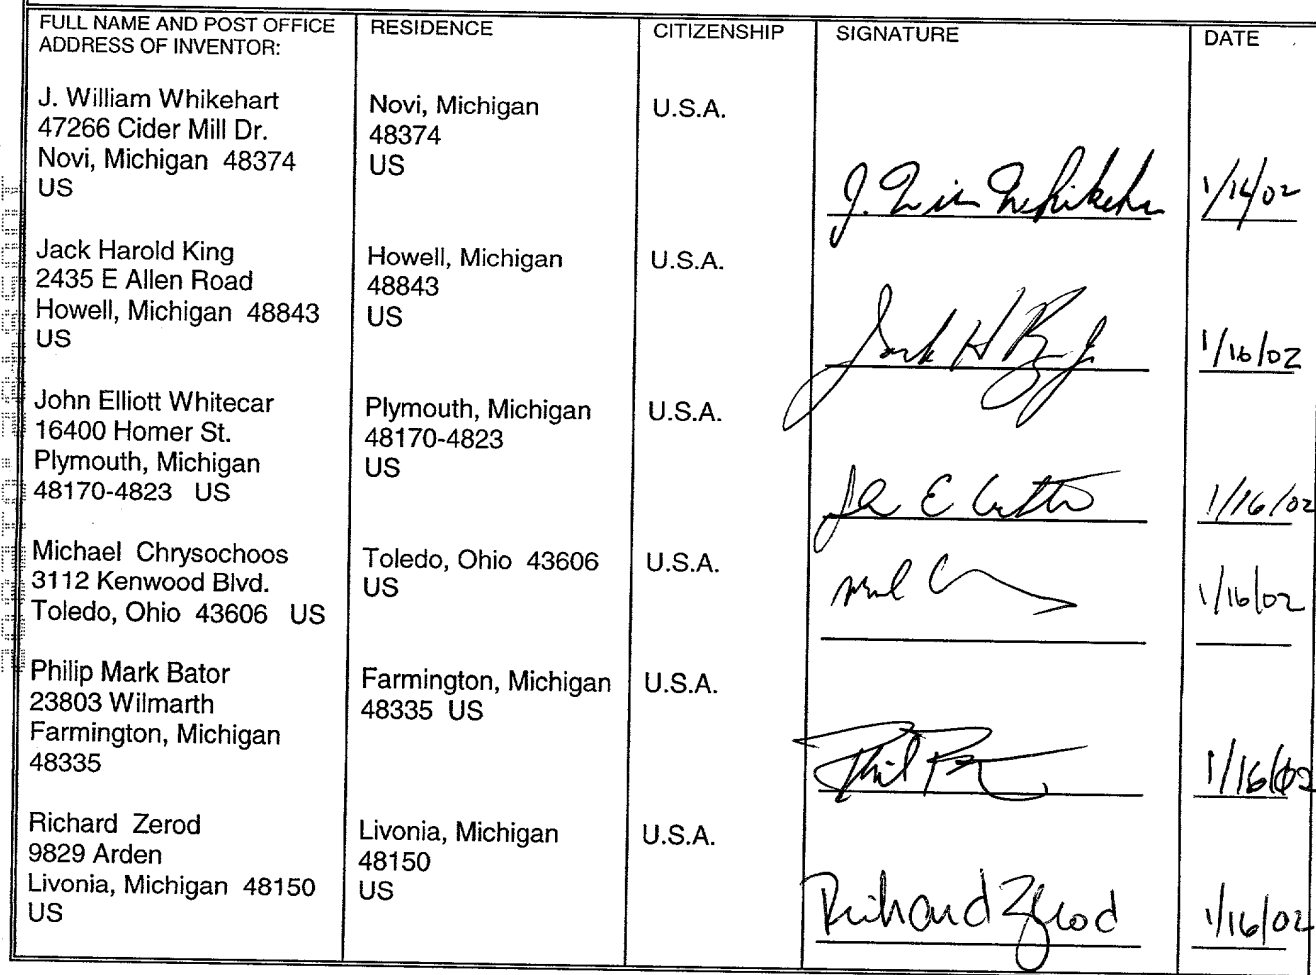 FULL NAME AND POST OFFICE ADDRESS OF INVENTOR:
RESIDENCE
CITIZENSHIP
SIGNATURE
DATE
J. William Whikehart
47266 Cider Mill Dr.
Novi, Michigan 48374
US
Novi, Michigan
48374
US
U.S.A.
1/14/02
Jack Harold King
2435 E Allen Road
Howell, Michigan 48843
US
Howell, Michigan
48843
US
U.S.A.
1/16/02
John Elliott Whitecar
16400 Homer St.
Plymouth, Michigan
48170-4823 US
Plymouth, Michigan
48170-4823
US
U.S.A.
1/16/02
Michael Chrysochoos
3112 Kenwood Blvd.
Toledo, Ohio 43606 US
Toledo, Ohio 43606
US
U.S.A.
1/16/02
Philip Mark Bator
23803 Wilmarth
Farmington, Michigan
48335
Farmington, Michigan
48335 US
U.S.A.
1/16/02
Richard Zerod
9829 Arden
Livonia, Michigan 48150
US
Livonia, Michigan
48150
US
U.S.A.
Richard Zerod
1/16/02